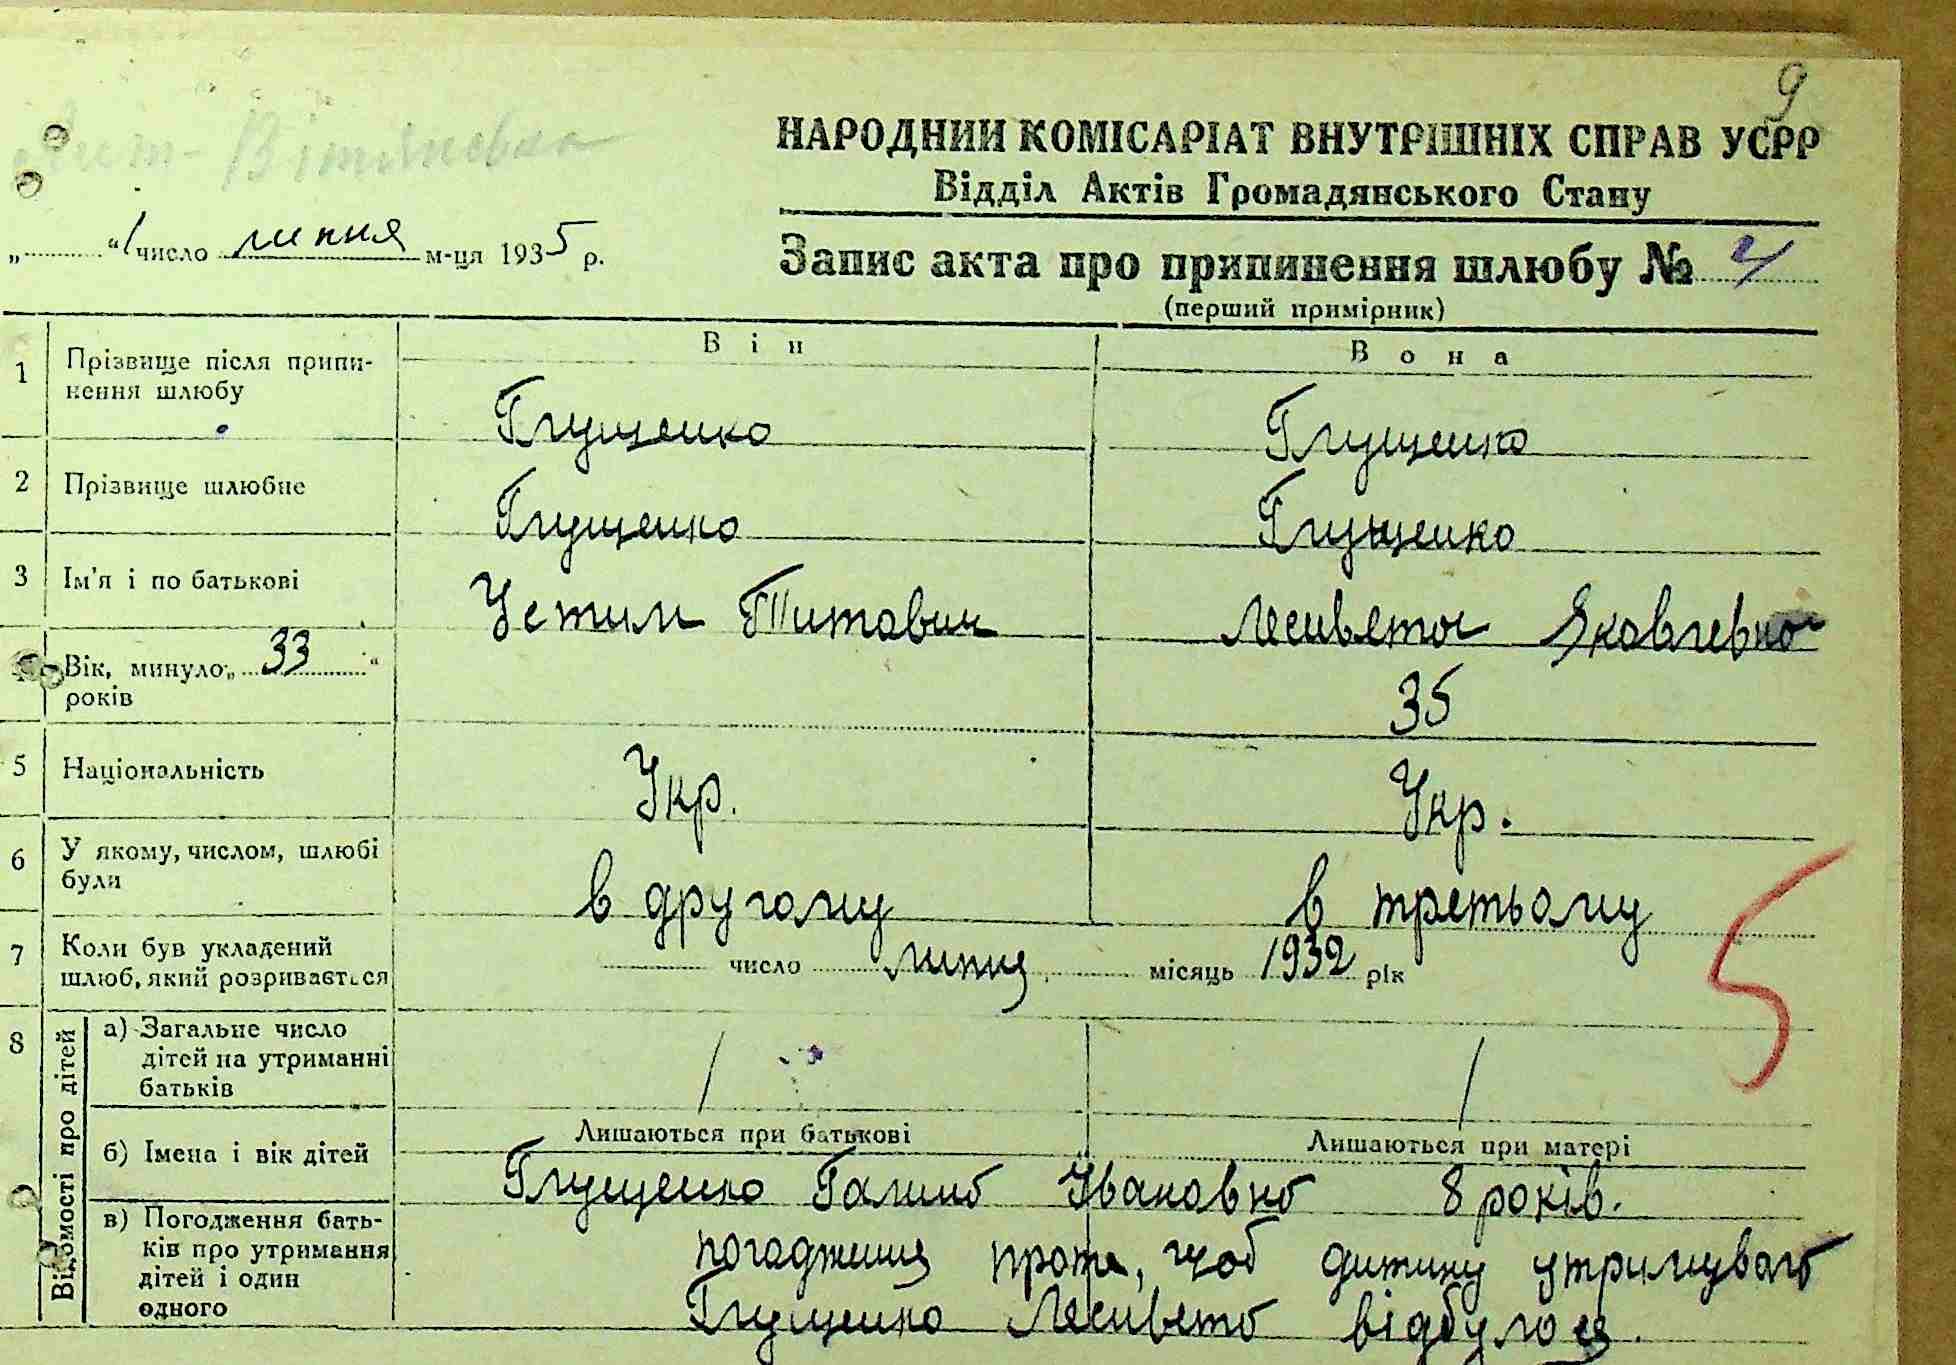 9
НАРОДНИЙ КОМІСАРІАТ ВНУТРІШНІХ СПРАВ УСРР
Відділ Актів Громадянського Стану
„ “ 1 число липня м-ця 1935 р.
Запис акта про припинення шлюбу № 4
(перший примірник)
Він Вона
1 Прізвище після припинення шлюбу Глущенко Глущенко
2 Прізвище шлюбне Глущенко Глущенко
3 Ім'я і по батькові Устим Титович Лесивета Яковлевна
4 Вік, минуло „33“ років 35
5 Національність Укр. Укр.
6 У якому, числом, шлюбі були в другому в третьому
7 Коли був укладений шлюб, який розривається число липня місяць 1932 рік
8 Відомості про дітей
а) Загальне число дітей на утриманні батьків / /
Лишаються при батькові Лишаються при матері
б) Імена і вік дітей Глущенко Галина Івановна 8 років.
в) Погодження батьків про утримання дітей і один одного погодження проте, щоб дитину утримувала
Глущенко Лесивета відбулося.
5